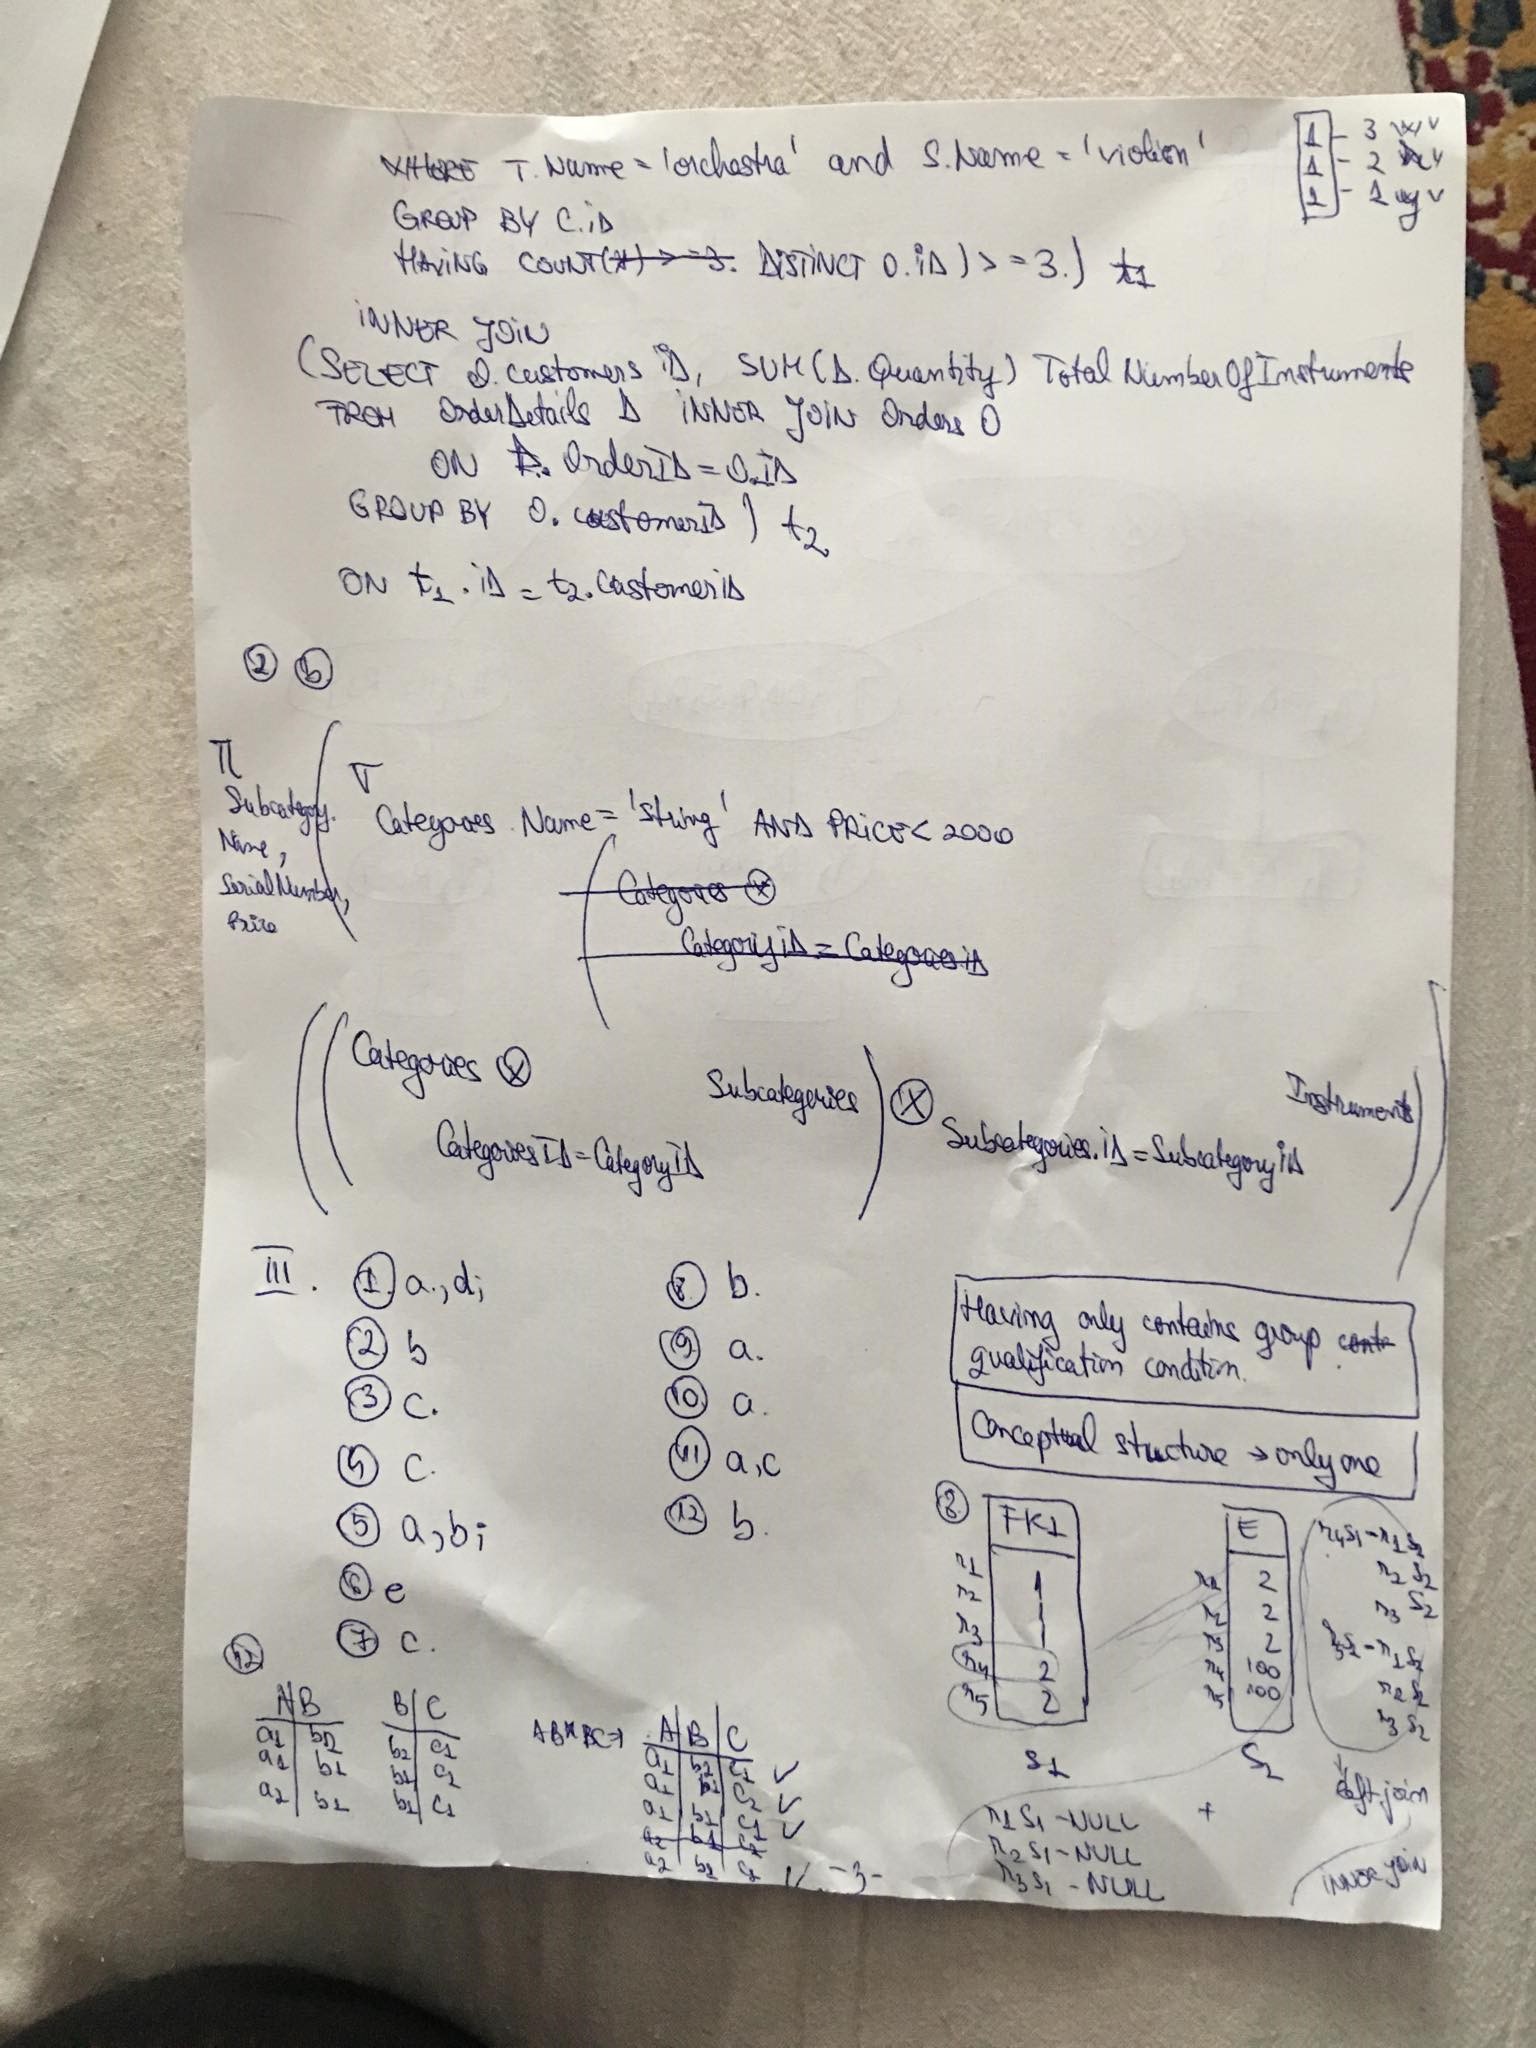 WHERE T. Name = 'orchestra' and S. Name = 'violien'
GROUP BY C.iD
HAVING COUNT(*) >= 3. DISTINCT O.iD) >= 3.) t1
1 - 3
1 - 2
1 - 1
iNNER JOiN
(SELECT O. customers iD, SUM(D. Quantity) Total NumberOfInstruments
FROM OrderDetails D iNNER JOiN Orders O
ON D. OrderID = O.ID
GROUP BY O. customerID ) t2
ON t1 . iD = t2. CustomeriD
2 b
π
Subcategory.
Name,
SerialNumber,
Price
σ
Categories . Name = 'string' AND PRiCE < 2000
Categories ⊗
CategoryiD = Categories.iD
Categories ⊗ Subcategories ) ⊗ Instruments
CategoriesID = CategoryID
Subcategories.iD = SubcategoryiD
III.
1. a., d;
2 b
3 c.
4 c.
5 a, b;
6 e
7 c.
8. b.
9 a.
10 a.
11 a, c
12 b.
Having only contains group
qualification condition.
Conceptual structure → only one
8.
FK1
r1 1
r2 1
r3 1
r4 2
r5 2
S1
E
r1 2
r2 2
r3 2
r4 100
r5 100
S2
r4S1 - r1 S2
r2 S2
r3 S2
r1 S2
r2 S2
r3 S2
left join
r1 S1 - NULL
r2 S1 - NULL
r3 S1 - NULL
+
iNNER JOiN
12
A B
a1 b2
a1 b1
a2 b1
B C
b2 c1
b1 c2
b1 c1
AB*BC →
A B C
a1 b2 c1
a1 b1 c2
a1 b1 c1
-3-